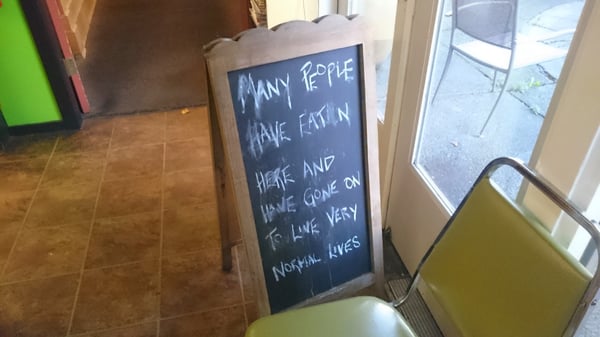 MANY PEOPLE
HAVE EATEN
HERE AND
HAVE GONE ON
TO LIVE VERY
NORMAL LIVES